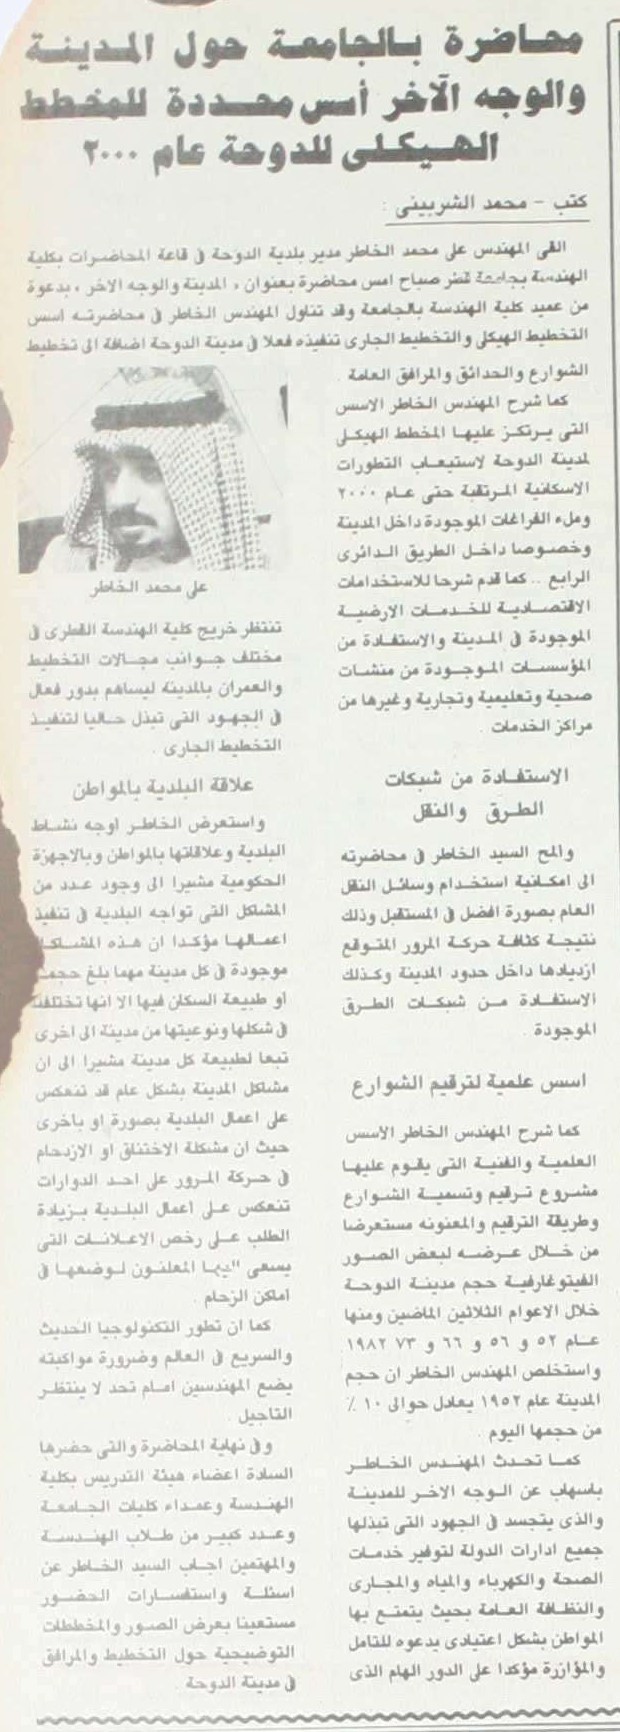 محاضرة بالجامعة حول المدينة
والوجه الآخر أسس محددة للمخطط
الهيكلى للدوحة عام ٢٠٠٠
كتب - محمد الشربينى :
القى المهندس على محمد الخاطر مدير بلدية الدوحة فى قاعة المحاضرات بكلية
الهندسة بجامعة قطر صباح امس محاضرة بعنوان ، المدينة والوجه الاخر ، بدعوة
من عميد كلية الهندسة بالجامعة وقد تناول المهندس الخاطر فى محاضرته اسس
التخطيط الهيكلى والتخطيط الجارى تنفيذه فعلا فى مدينة الدوحة اضافة الى تخطيط
الشوارع والحدائق والمرافق العامة .
كما شرح المهندس الخاطر الاسس
التى يرتكز عليها المخطط الهيكلى
لمدينة الدوحة لاستيعاب التطورات
الاسكانية المرتقبة حتى عام ٢٠٠٠
وملء الفراغات الموجودة داخل المدينة
وخصوصا داخل الطريق الدائرى
الرابع .. كما قدم شرحا للاستخدامات
الاقتصادية للخدمات الارضية
الموجودة فى المدينة والاستفادة من
المؤسسات الموجودة من منشات
صحية وتعليمية وتجارية وغيرها من
مراكز الخدمات .
الاستفادة من شبكات
الطرق والنقل
والمح السيد الخاطر فى محاضرته
الى امكانية استخدام وسائل النقل
العام بصورة افضل فى المستقبل وذلك
نتيجة كثافة حركة المرور المتوقع
ازديادها داخل حدود المدينة وكذلك
الاستفادة من شبكات الطرق
الموجودة .
اسس علمية لترقيم الشوارع
كما شرح المهندس الخاطر الاسس
العلمية والفنية التى يقوم عليها
مشروع ترقيم وتسمية الشوارع
وطريقة الترقيم والمعنونه مستعرضا
من خلال عرضه لبعض الصور
الفيتوغارفية حجم مدينة الدوحة
خلال الاعوام الثلاثين الماضين ومنها
عام ٥٢ و ٥٦ و ٦٦ و ٧٣ ١٩٨٢
واستخلص المهندس الخاطر ان حجم
المدينة عام ١٩٥٢ يعادل حوالى ١٠ ٪
من حجمها اليوم .
كما تحدث المهندس الخاطر
باسهاب عن الوجه الاخر للمدينة
والذى يتجسد فى الجهود التى تبذلها
جميع ادارات الدولة لتوفير خدمات
الصحة والكهرباء والمياه والمجارى
والنظافة العامة بحيث يتمتع بها
المواطن بشكل اعتيادى يدعوه للتامل
والمؤازرة مؤكدا على الدور الهام الذى
على محمد الخاطر
تنتظر خريج كلية الهندسة القطرى فى
مختلف جوانب مجالات التخطيط
والعمران بالمدينة ليساهم بدور فعال
فى الجهود التى تبذل حاليا لتنفيذ
التخطيط الجارى .
علاقة البلدية بالمواطن
واستعرض الخاطر اوجه نشاط
البلدية وعلاقاتها بالمواطن وبالاجهزة
الحكومية مشيرا الى وجود عدد من
المشاكل التى تواجه البلدية فى تنفيذ
اعمالها مؤكدا ان هذه
موجودة فى كل مدينة مهما بلغ
او طبيعة السكان فيها الا انها تختلف
فى شكلها ونوعيتها من مدينة الى اخرى
تبعا لطبيعة كل مدينة مشيرا الى ان
مشاكل المدينة بشكل عام قد تنعكس
على اعمال البلدية بصورة او باخرى
حيث ان مشكلة الاختناق او الازدحام
فى حركة المرور على احد الدوارات
تنعكس على اعمال البلدية بزيادة
الطلب على رخص الاعلانات التى
يسعى المعلنون لوضعها فى
اماكن الزحام .
كما ان تطور التكنولوجيا الحديث
والسريع فى العالم وضرورة مواكبته
يضع المهندسين امام تحد لا ينتظر
التاجيل .
وفى نهاية المحاضرة والتى حضرها
السادة اعضاء هيئة التدريس بكلية
الهندسة وعمداء كليات الجامعة
وعدد كبير من طلاب الهندسة
والمهتمين اجاب السيد الخاطر عن
اسئلة واستفسارات الحضور
مستعينا بعرض الصور والمخططات
التوضيحية حول التخطيط والمرافق
فى مدينة الدوحة .